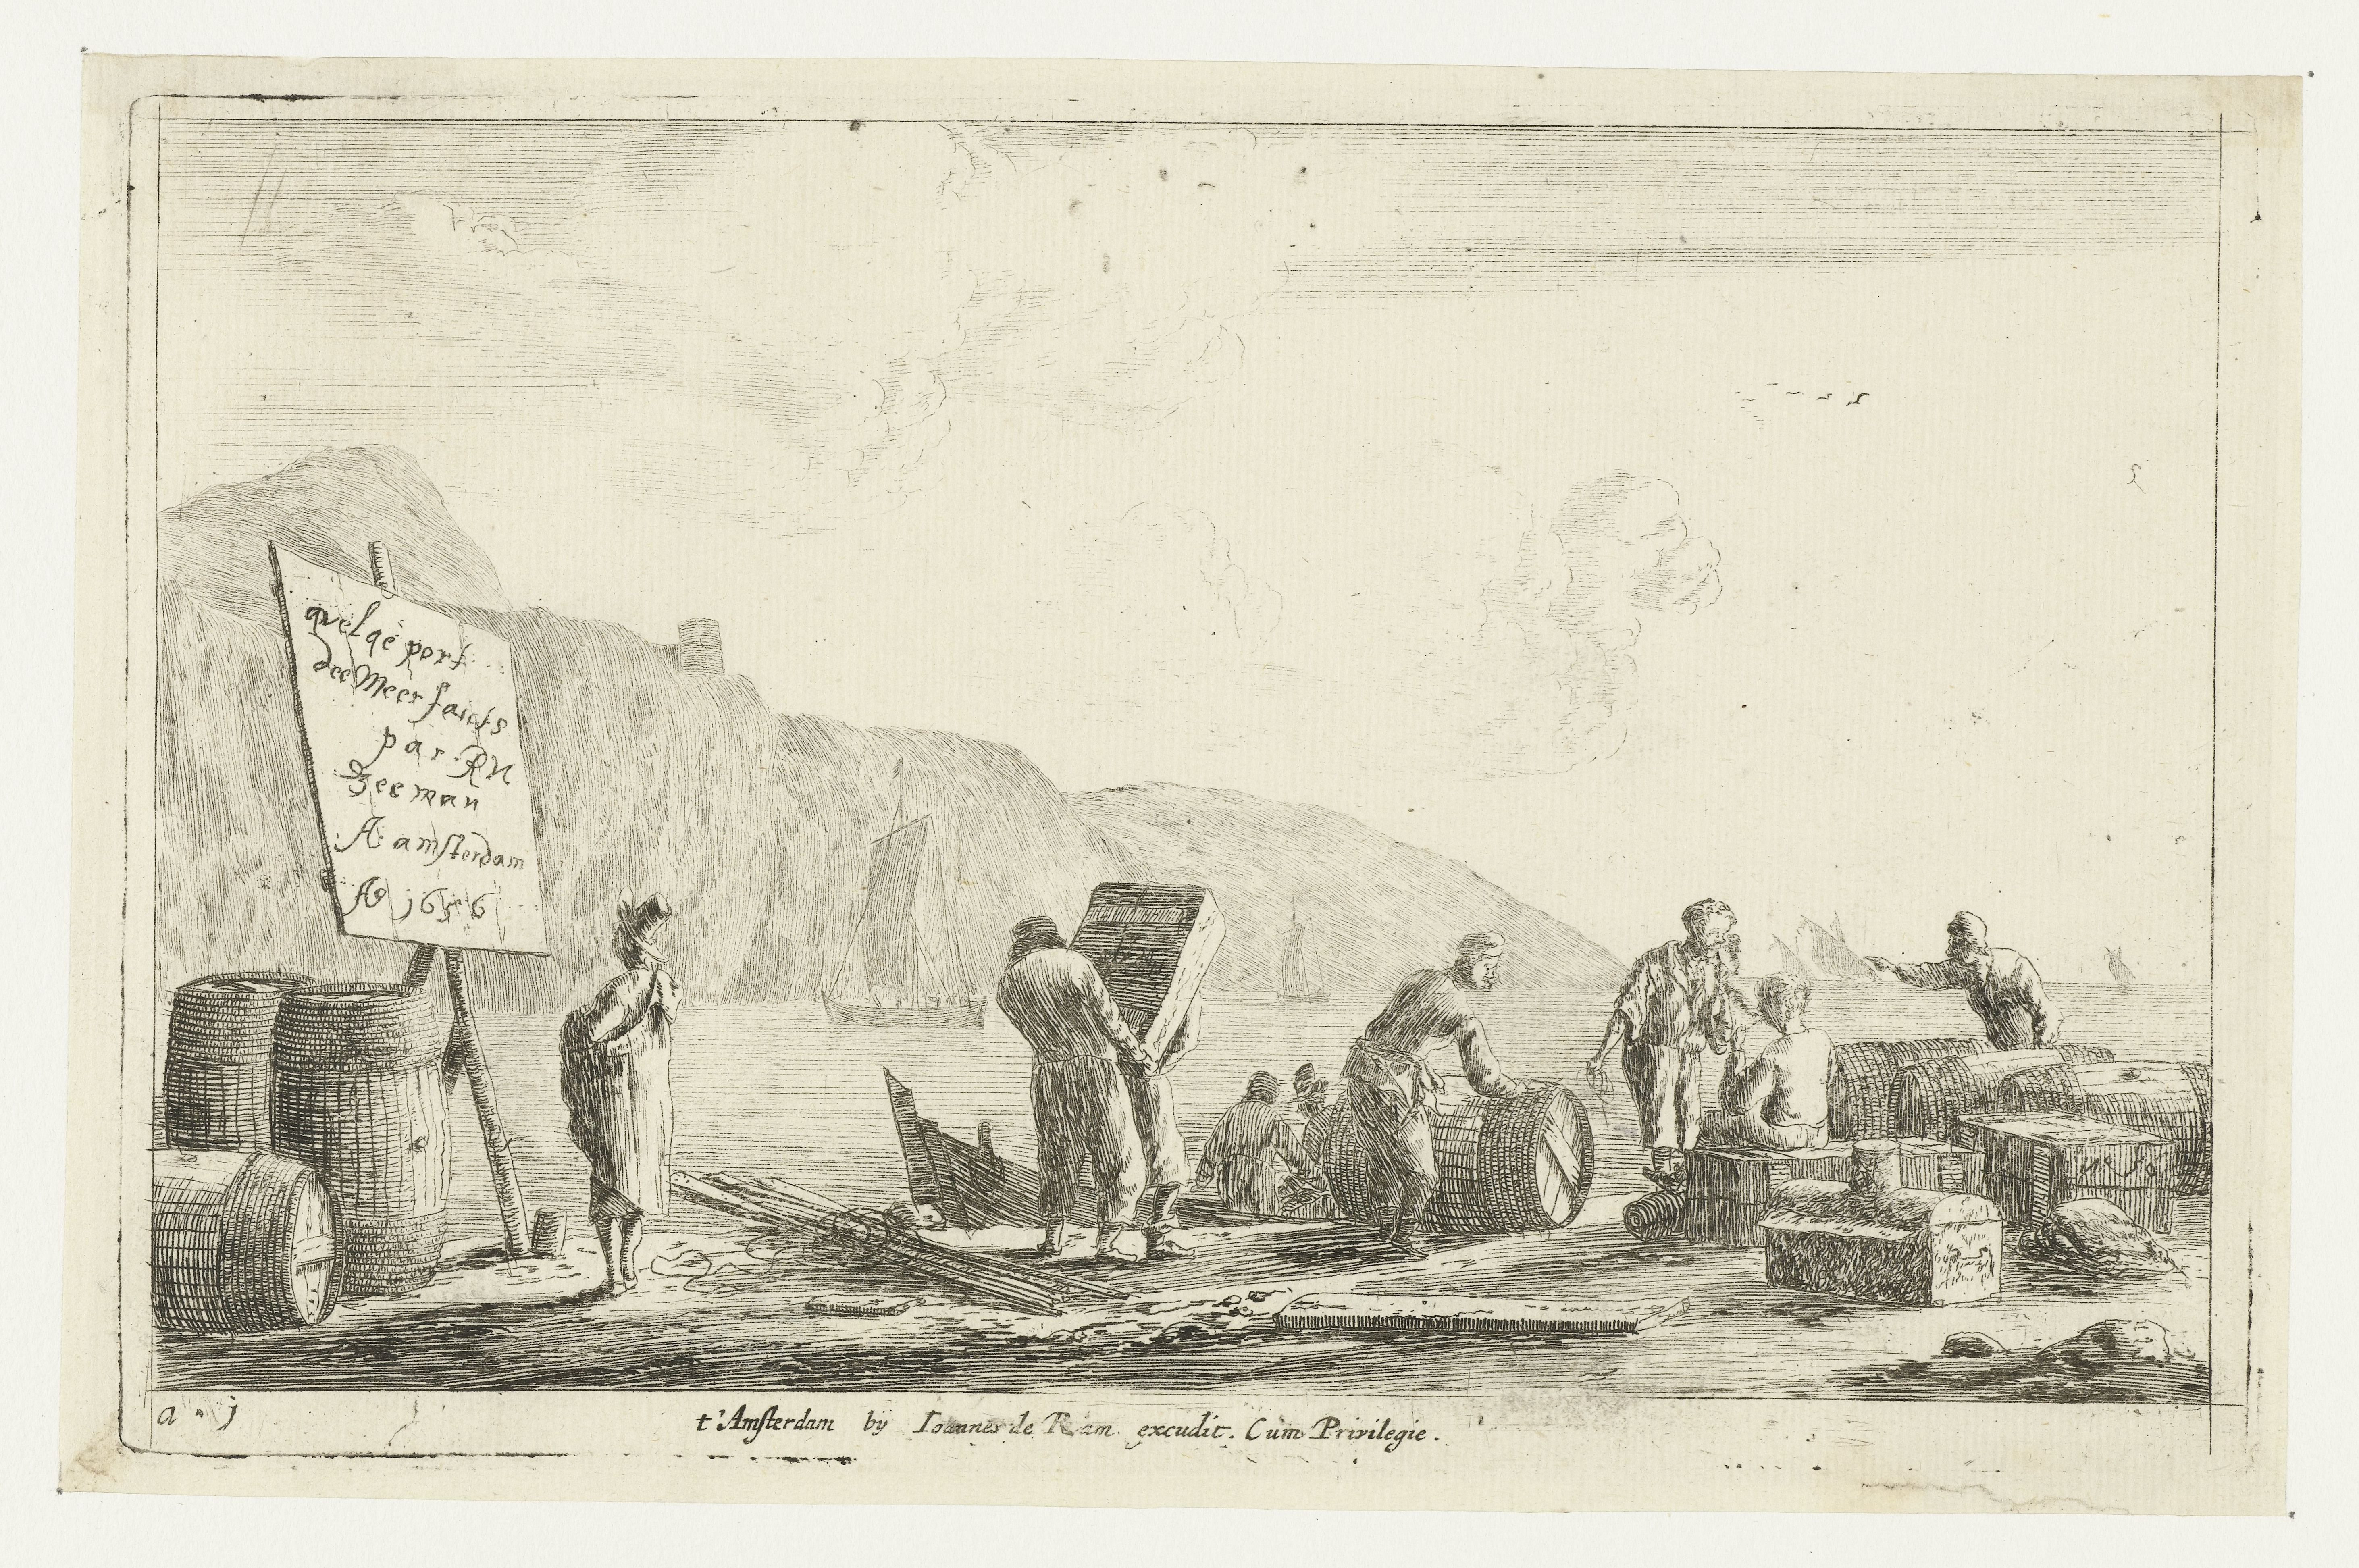 quelqe port
dee Meer faicts
par RN
Zeeman
A amsterdam
Ao 1656
a . j
t'Amsterdam by Ioannes de Ram excudit. Cum Privilegie.